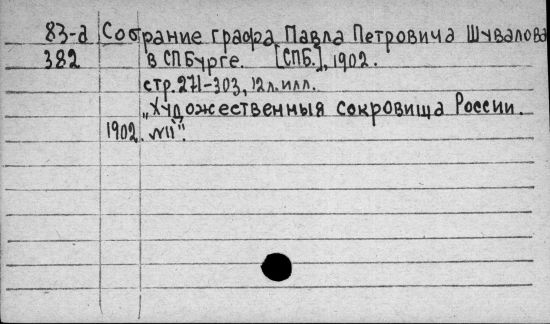 83-а Собрание графа Павла Петровича Шувалова
382 в СПБурге. [СПБ.], 1902.
стр. 271-303, 12 л. илл.
„Художественныя сокровища России.
1902. №11".